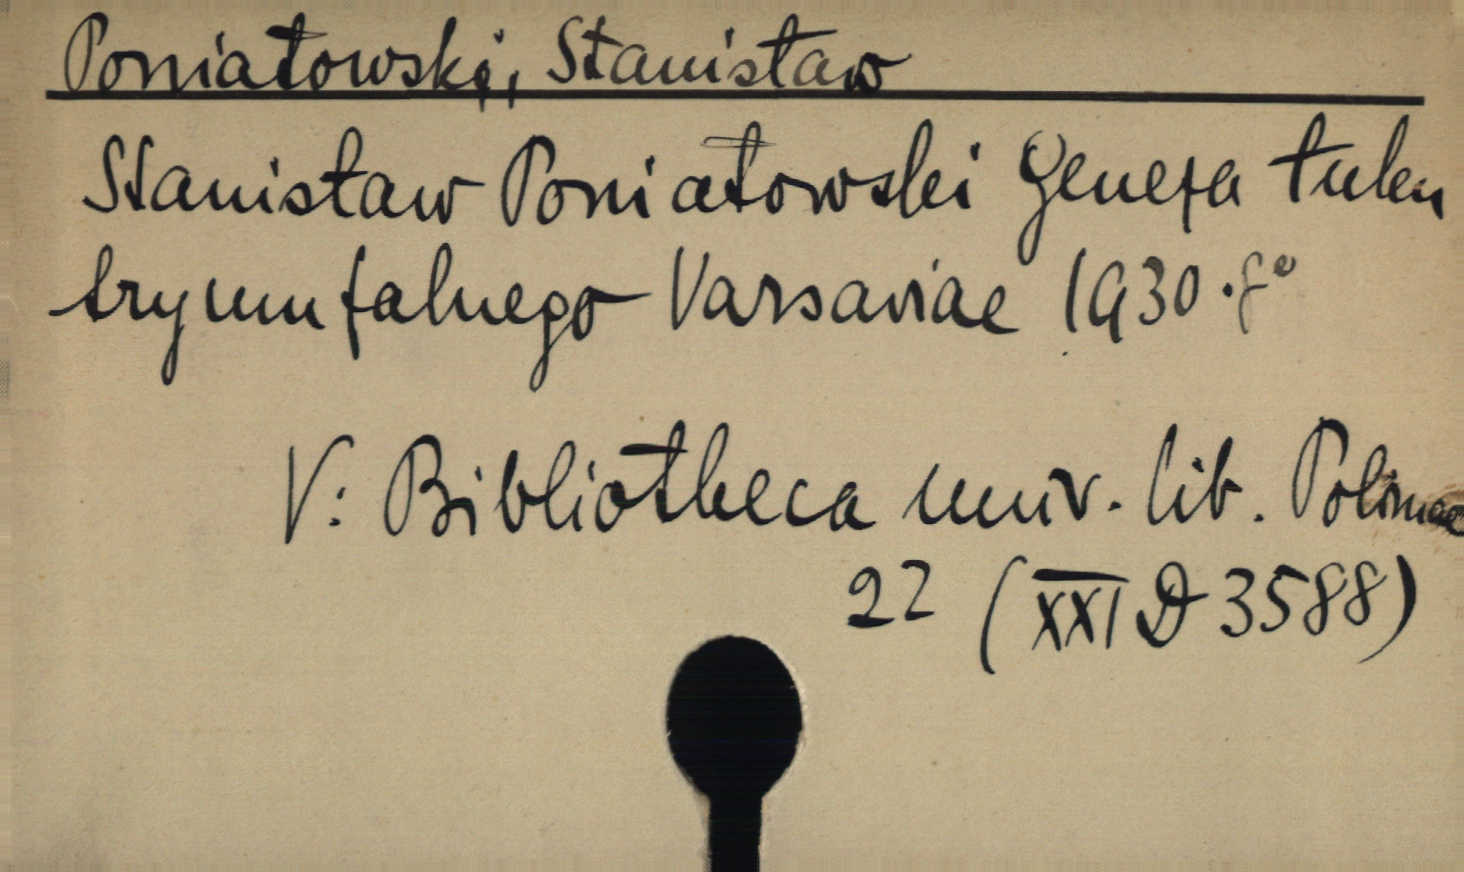 Poniatowski, Stanisław
Stanisław Poniatowski Geneza łuku
tryumfalnego Varsaviae 1930. 8°
V: Bibliotheca univ. lib. Polonae
22 (XXI D 3588)